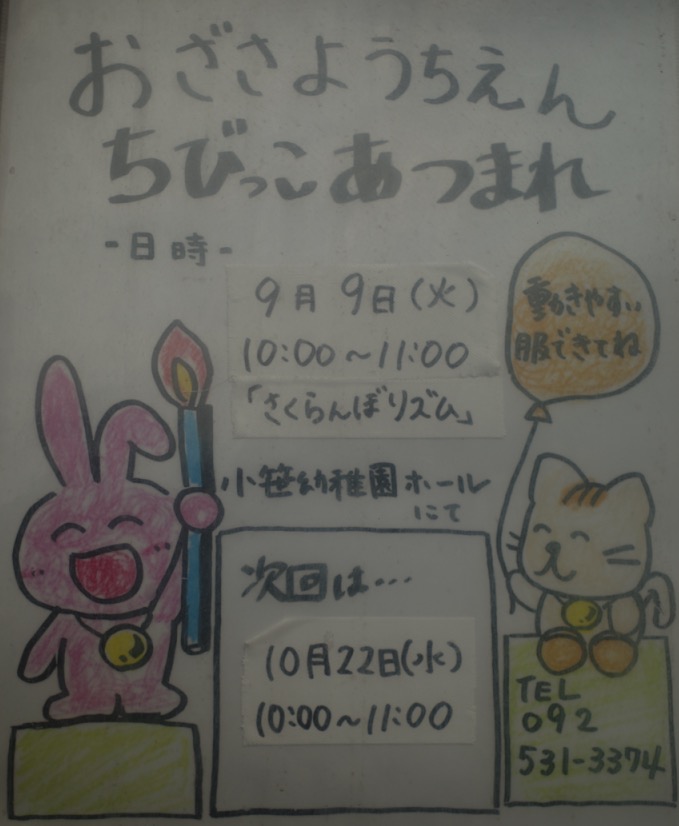 おざさようちえん
ちびっこあつまれ
-日時-
9月9日(火)
10:00～11:00
「さくらんぼリズム」
小笹幼稚園ホール
にて
動きやすい
服できてね
次回は…
10月22日(水)
10:00～11:00
TEL
092
531-3374